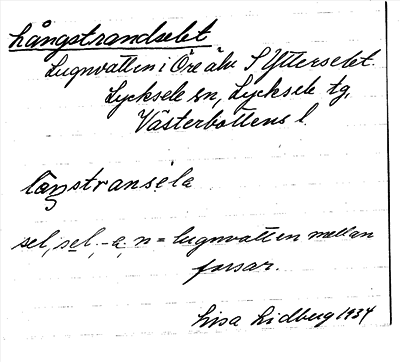 Långstrandselet
Lugnvatten i Öre älv S Ytterselet
Lycksele sn, Lycksele tg,
Västerbottens l.
låŋstransela
sel, sel, -a, n = lugnvatten mellan
forsar.
Lisa Lidberg 1934